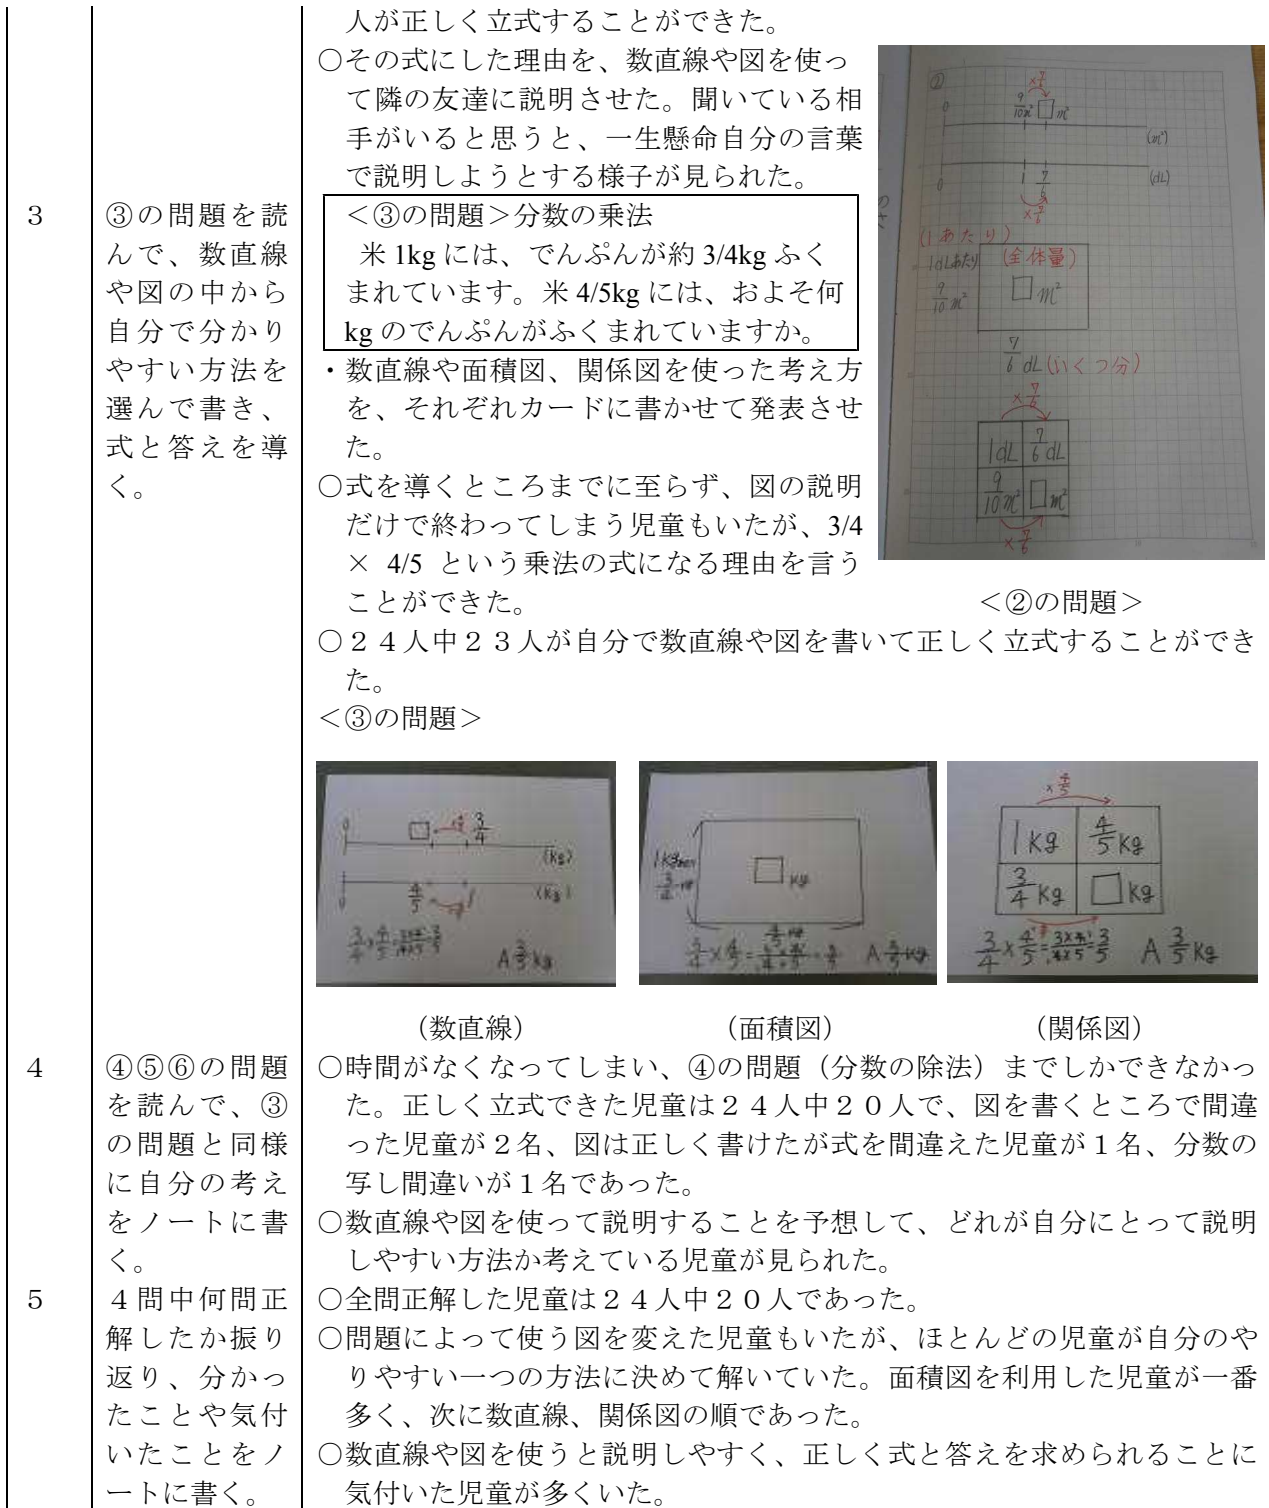 人が正しく立式することができた。
○その式にした理由を、数直線や図を使っ
て隣の友達に説明させた。聞いている相
手がいると思うと、一生懸命自分の言葉
で説明しようとする様子が見られた。
3
③の問題を読
んで、数直線
や図の中から
自分で分かり
やすい方法を
選んで書き、
式と答えを導
く。
＜③の問題＞分数の乗法
米 1kg には、でんぷんが約 3/4kg ふく
まれています。米 4/5kg には、およそ何
kg のでんぷんがふくまれていますか。
・数直線や面積図、関係図を使った考え方
を、それぞれカードに書かせて発表させ
た。
○式を導くところまでに至らず、図の説明
だけで終わってしまう児童もいたが、3/4
× 4/5 という乗法の式になる理由を言う
ことができた。
②
×7/6
0 9/10m² □m²
(m²)
0 1 7/6
(dL)
×7/6
(1あたり)
1dLあたり (全体量)
9/10m² □m²
7/6dL(いくつ分)
×7/6
1dL 7/6dL
9/10m² □m²
×7/6
＜②の問題＞
○２４人中２３人が自分で数直線や図を書いて正しく立式することができ
た。
＜③の問題＞
0 □ 3/4
(kg)
0 4/5 1 (kg)
3/4×4/5=3×4/4×5=3/5
A 3/5kg
□kg
3/4×4/5=3×4/4×5=3/5 A 3/5kg
×4/5
1kg 4/5kg
3/4kg □kg
3/4×4/5=3×4/4×5=3/5 A 3/5kg
（数直線） （面積図） （関係図）
4
④⑤⑥の問題
を読んで、③
の問題と同様
に自分の考え
をノートに書
く。
○時間がなくなってしまい、④の問題（分数の除法）までしかできなかっ
た。正しく立式できた児童は２４人中２０人で、図を書くところで間違
った児童が２名、図は正しく書けたが式を間違えた児童が１名、分数の
写し間違いが１名であった。
○数直線や図を使って説明することを予想して、どれが自分にとって説明
しやすい方法か考えている児童が見られた。
5
４問中何問正
解したか振り
返り、分かっ
たことや気付
いたことをノ
ートに書く。
○全問正解した児童は２４人中２０人であった。
○問題によって使う図を変えた児童もいたが、ほとんどの児童が自分のや
りやすい一つの方法に決めて解いていた。面積図を利用した児童が一番
多く、次に数直線、関係図の順であった。
○数直線や図を使うと説明しやすく、正しく式と答えを求められることに
気付いた児童が多くいた。